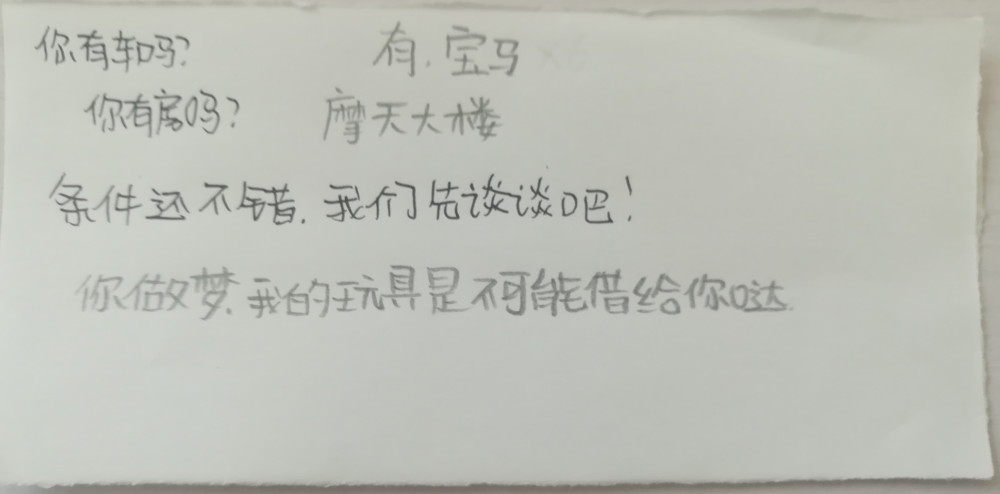 你有车吗? 有,宝马
你有房吗? 摩天大楼
条件还不错,我们先谈谈吧!
你做梦,我的玩具是不可能借给你哒.